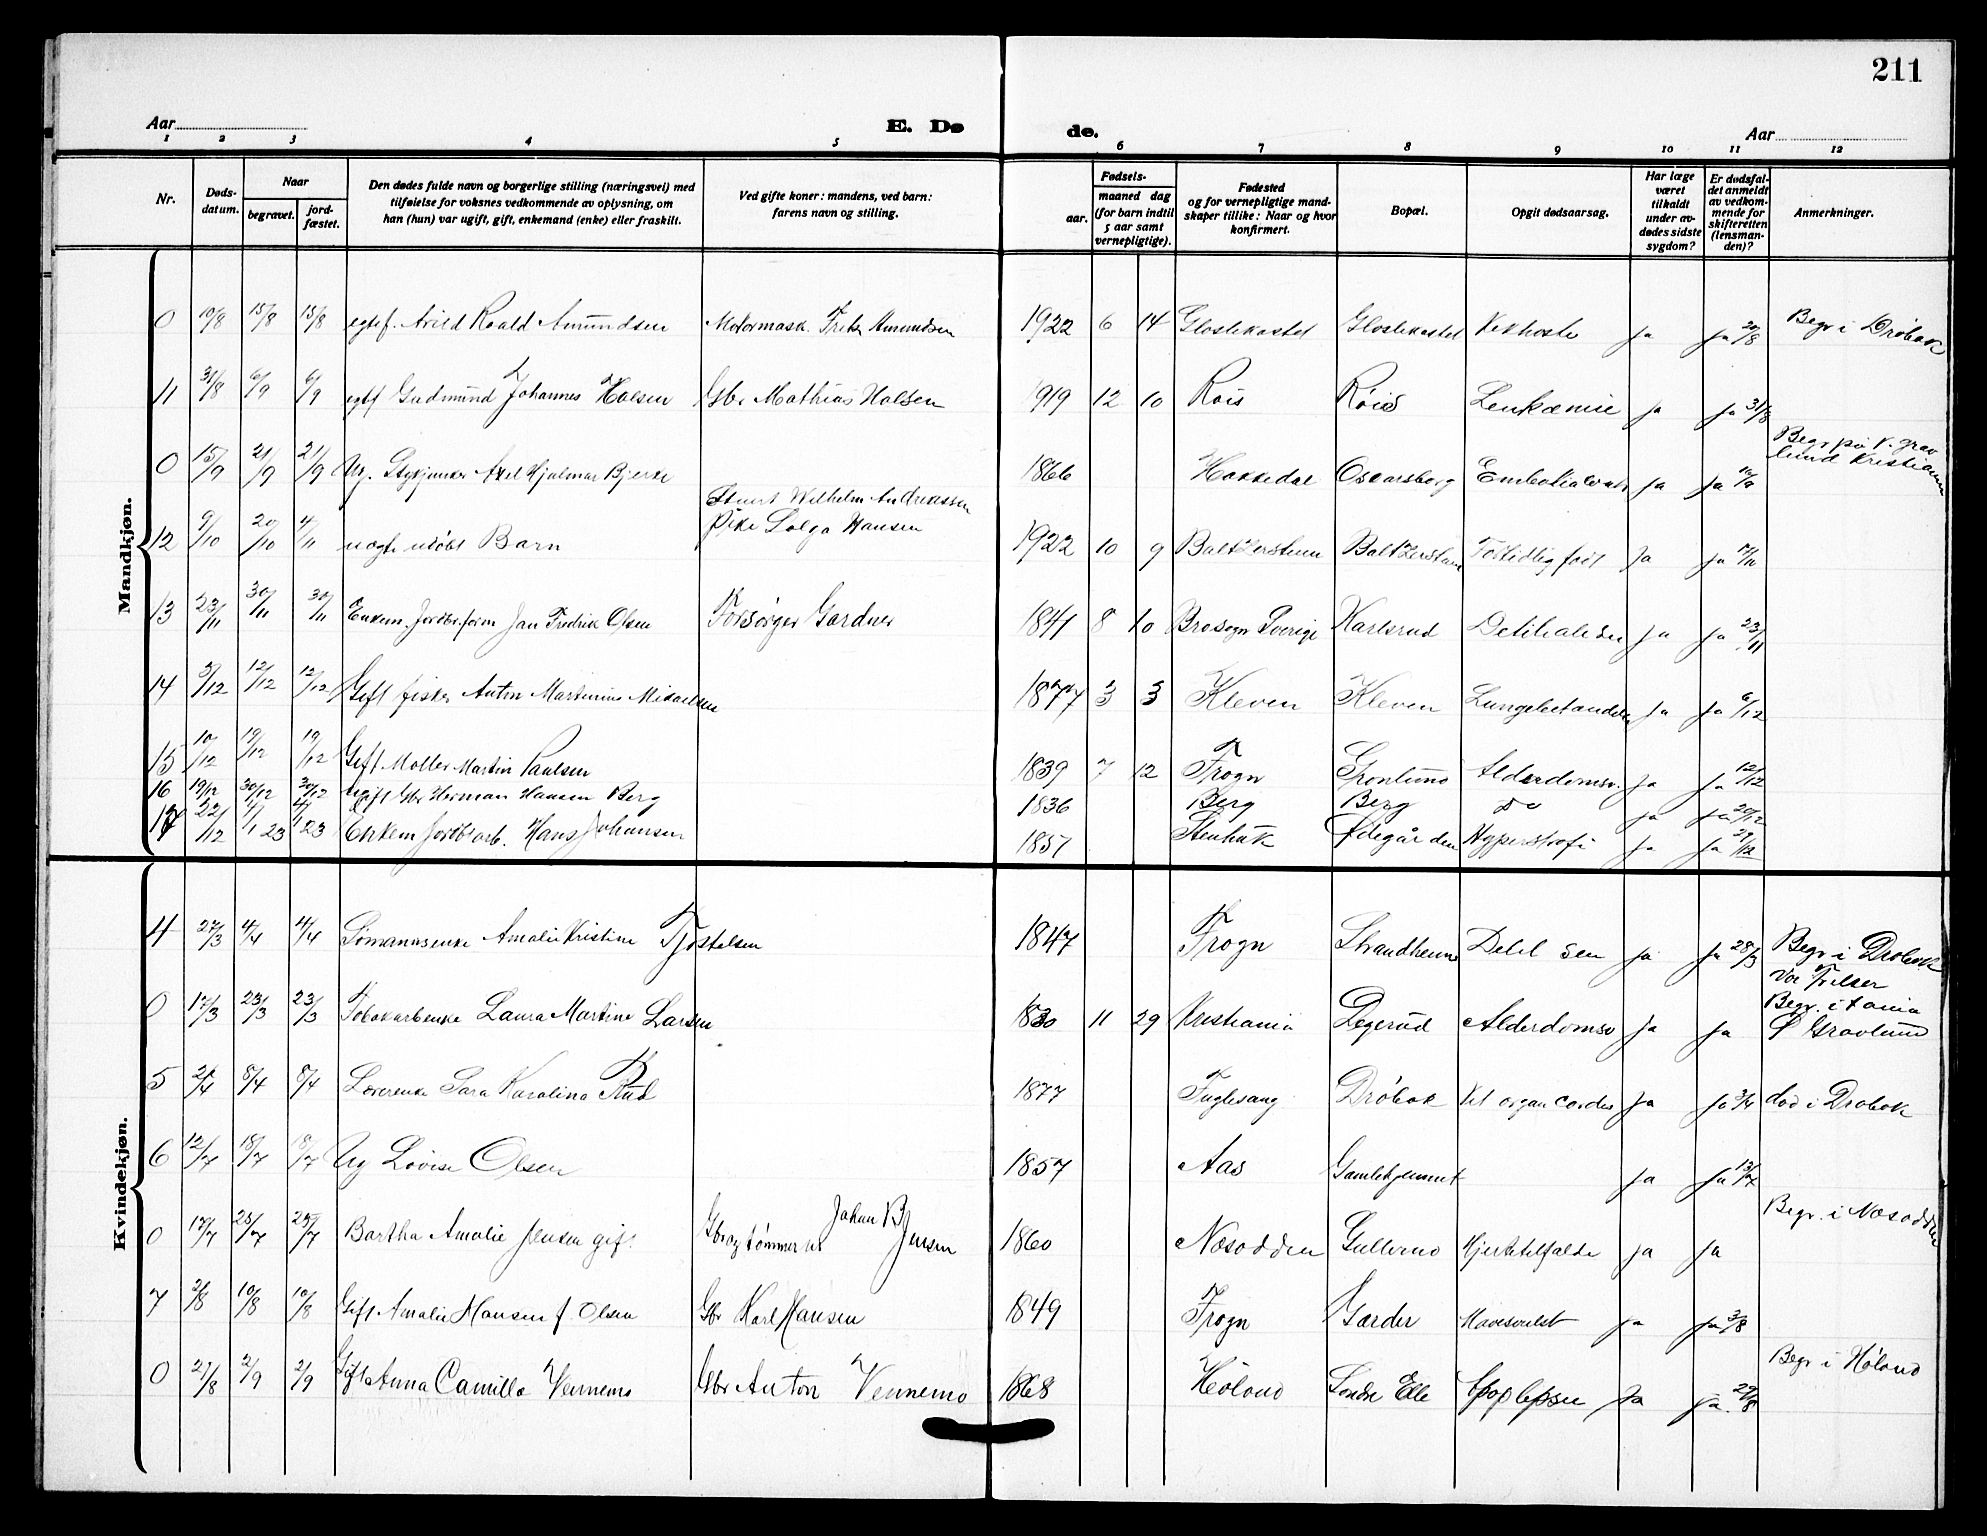 211
Aar
E. Dø
de.
Aar
1 2 3 4 5 6 7 8 9 10 11 12
Nr.
Døds-
datum.
Naar
begravet.
jord-
fæstet.
Den dødes fulde navn og borgerlige stilling (næringsvei) med
tilføielse for voksnes vedkommende av oplysning, om
han (hun) var ugift, gift, enkemand (enke) eller fraskilt.
Ved gifte koner: mandens, ved barn:
farens navn og stilling.
Fødsels-
aar.
maaned dag
(for barn indtil
5 aar samt
vernepligtige).
Fødested
og for vernepligtige mand-
skaper tillike: Naar og hvor
konfirmert.
Bopæl.
Opgit dødsaarsag.
Har læge
været
tilkaldt
under av-
dødes sidste
sygdom?
Er dødsfal-
det anmeldt
av vedkom-
mende for
skifteretten
(lensman-
den)?
Anmerkninger.
Mandkjøn.
0 10/8 15/8 15/8 egtef. Arild Roald Amundsen Motormask. Fritz Amundsen 1922 6 14 Ja Ja 20/8 Begr i Drøbak
11 31/8 6/9 6/9 egtf Gudmund Johannes Halsen Gbr Mathias Halsen 1919 12 10 Røis Røis Leukæmie Ja Ja 31/8
0 15/9 21/9 21/9 Ug. Axel Hjalmar Bjerke 1866 Hakkedal Oscarsborg Ja Ja Begr på V. grav
lund Kristiania
Wilhelm Andreassen
Pike Solga Hansen
12 9/10 20/10 4/11 uægte udøbt Barn 1922 10 9 Baltzerstuen Baltzerstuen Fortidlig født Ja Ja
13 23/11 30/11 30/11 Enkem. Jan Fredrik Olsen Forsørger Gardner 1841 8 10 Karlsrud Ja Ja 23/11
14 5/12 12/12 12/12 Gift fisker Anton Martinius Mikaelsen 1877 3 3 Kleven Kleven Lungebetændelse Ja Ja 6/12
15 10/12 19/12 19/12 Gift Møller Martin Paulsen 1839 7 12 Frogn Grønlund Alderdomsv. Ja Ja 12/12
16 19/12 30/12 30/12 Ugift Gbr Herman Hansen Berg 1836 Berg Berg do Ja Ja 20/12
17 22/12 4/1 23 4/1 23 Enkem Jordbr arb. Hans Johansen 1857 Ødegården Ja Ja
Kvindekjøn.
4 27/3 4/4 4/4 Sømansenke Amalie Kristine Tjøstelsen 1847 Frogn Strandheim Ja Ja 28/3 Begr i Drøbak
Vor Frelser
0 17/3 23/3 23/3 Laura Martine Larsen 1830 11 29 Kristiania Degerud Alderdomsv Ja Ja
Gravlund
5 2/4 8/4 8/4 Sara Karolina Rud 1877 Fuglesang Drøbak Vit organ cordis Ja Ja 3/4 død i Drøbak
6 12/7 18/7 18/7 Ug Lovise Olsen 1857 Aas Ja Ja 13/7
Johan B
0 17/7 25/7 25/7 Bertha Amalie Jensen gift. Gbr og tømmerm Jensen 1860 Næsodden Gullerud Hjertetilfælde Ja Ja Begr. i Næsodden
7 2/8 10/8 10/8 Gift Amalie Hansen f. Olsen Gbr Karl Hansen 1849 Frogn Garder Mavesvulst Ja Ja 3/8
0 27/8 2/9 2/9 Gift Anna Camilla Vennemo Gbr Anton Vennemo 1868 Høland Søndre Elle Ja Ja 29/8 Begr i Høland